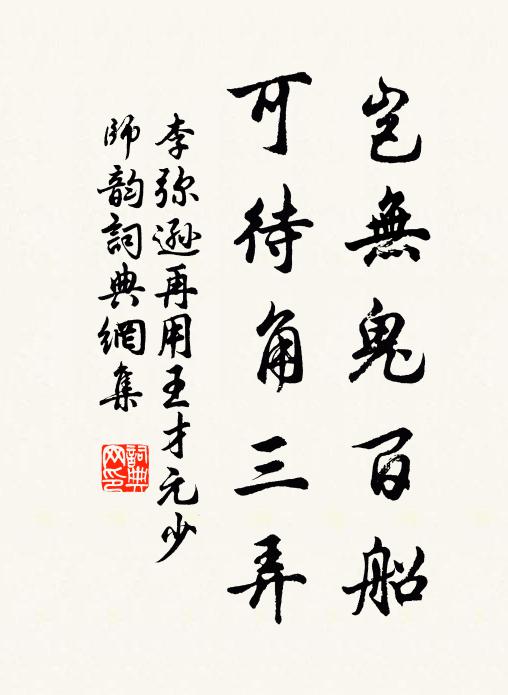 豈無鬼百船
可待角三弄
李弥遜再用王才元少
師韵詞典網集
詞典网印